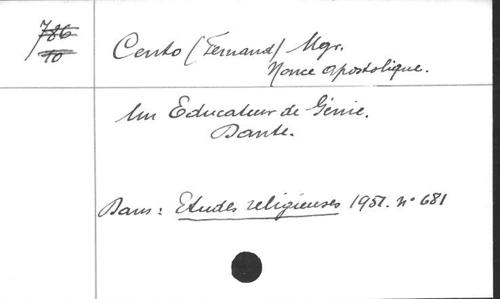 786
10
Cento (Fernand) Mgr.
Nonce apostolique.
Un Educateur de Génie.
Dante.
Dans : Etudes religieuses 1951. n° 681